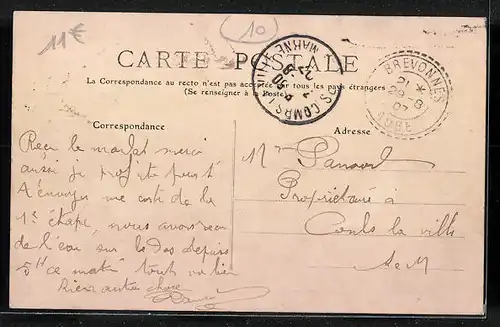 11€
10
CARTE POSTALE
La Correspondance au recto n'est pas acceptée par tous les pays étrangers
(Se renseigner à la Poste)
S. COMBS LA VILLE
MARNE
BREVONNES
21 *
29 8
07
AUBE
Correspondance
Adresse
Reçu le mandat merci
aussi je profite pour t
envoyer une carte de la
1re étape, nous avons reçu
de l'eau sur le dos depuis
5H ce matin tout va bien
Rien autre chose
Mr
Propriétaire à
Combs la ville
S et M